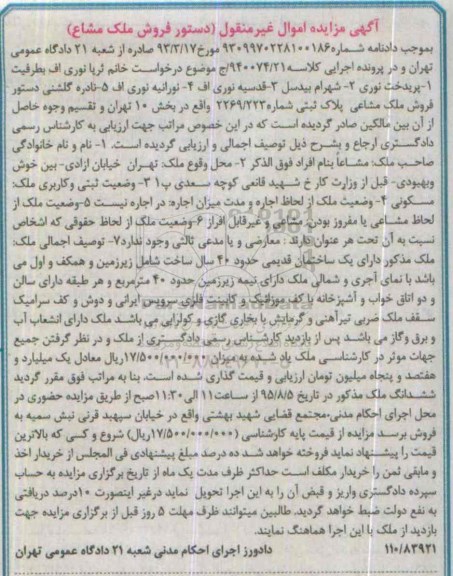 آگهی مزایده اموال غیرمنقول (دستور فروش ملک مشاع)
بموجب دادنامه شماره۹۳۰۹۹۷۰۲۲۸۱۰۰۱۸۶ مورخ۹۳/۳/۱۷ صادره از شعبه ۲۱ دادگاه عمومی
تهران و در پرونده اجرایی کلاسه۹۴۰۰۷۴/۲۱/ج موضوع درخواست خانم ثریا نوری اف بطرفیت
۱-پریدخت نوری ۲- شهرام بیدسل ۳-قدسیه نوری اف ۴- نورانیه نوری اف ۵-نادره گلشنی دستور
فروش ملک مشاعی پلاک ثبتی شماره۲۲۶۹/۲۲۳ واقع در بخش ۱۰ تهران و تقسیم وجوه حاصل
از آن بین مالکین صادر گردیده است که در این خصوص مراتب جهت ارزیابی به کارشناس رسمی
دادگستری ارجاع و بشرح ذیل توصیف اجمالی و ارزیابی گردیده است. ۱- نام و نام خانوادگی
صاحب ملک: مشاعاً بنام افراد فوق الذکر ۲- محل وقوع ملک: تهران خیابان ازادی- بین خوش
وبهبودی- قبل از وزارت کار خ شهید قانعی کوچه سعدی پ۱ ۳- وضعیت ثبتی وکاربری ملک:
مسکونی ۴- وضعیت ملک از لحاظ اجاره و مدت میزان اجاره: در اجاره نیست ۵-وضعیت ملک از
لحاظ مشاعی یا مفروز بودن: مشاعی و غیرقابل افراز ۶-وضعیت ملک از لحاظ حقوقی که اشخاص
نسبت به آن تحت هر عنوان دارند : معارضی و یا مدعی ثالثی وجود ندارد۷- توصیف اجمالی ملک:
ملک مذکور دارای یک ساختمان قدیمی حدود ۴۰ سال ساخت شامل زیرزمین و همکف و اول می
باشد با نمای آجری و شمالی ملک دارای نیمه زیرزمین حدود ۴۰ مترمربع و هر طبقه دارای سالن
و دو اتاق خواب و آشپزخانه با کف موزائیک و کابینت فلزی سرویس ایرانی و دوش و کف سرامیک
سقف ملک ضربی تیرآهنی و گرمایش با بخاری گازی و کولرآبی می باشد ملک دارای انشعاب آب
و برق وگاز می باشد پس از بازدید کارشناس رسمی دادگستری از ملک و در نظر گرفتن جمیع
جهات موثر در کارشناسی ملک یاد شده به میزان ۱۷/۵۰۰/۰۰۰/۰۰۰ریال معادل یک میلیارد و
هفتصد و پنجاه میلیون تومان ارزیابی و قیمت گذاری شده است. بنا به مراتب فوق مقرر گردید
ششدانگ ملک مذکور در تاریخ ۹۵/۸/۵ از ساعت۱۱ الی ۱۱:۳۰صبح از طریق مزایده حضوری در
محل اجرای احکام مدنی-مجتمع قضایی شهید بهشتی واقع در خیابان سپهبد قرنی نبش سمیه به
فروش برسد مزایده از قیمت پایه کارشناسی (۱۷/۵۰۰/۰۰۰/۰۰۰ریال) شروع و کسی که بالاترین
قیمت را پیشنهاد نماید فروخته خواهد شد ده درصد مبلغ پیشنهادی فی المجلس از خریدار اخذ
و مابقی ثمن را خریدار مکلف است حداکثر ظرف مدت یک ماه از تاریخ برگزاری مزایده به حساب
سپرده دادگستری واریز و قبض آن را به این اجرا تحویل نماید درغیر اینصورت ۱۰درصد دریافتی
به نفع دولت ضبط خواهد گردید. طالبین میتوانند ظرف مهلت ۵ روز قبل از برگزاری مزایده جهت
بازدید از ملک با این اجرا هماهنگ نمایند.
۱۱۰/۸۳۹۲۱ دادورز اجرای احکام مدنی شعبه ۲۱ دادگاه عمومی تهران